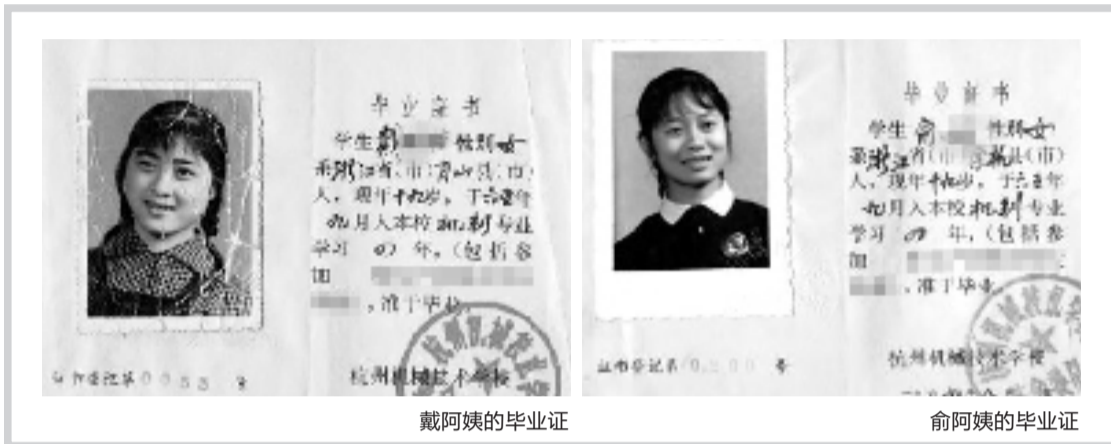 毕业证书
学生 性别女
系浙江省(市)萧山县(市)
人，现年十九岁，于六五年
九月入本校机制专业
学习 四 年，(包括参
加
，准予毕业。
杭州机械技术学校
证书登记第0053号
戴阿姨的毕业证
毕业证书
学生俞 性别女
系浙江省(市)县(市)
人，现年十九岁，于六五年
九月入本校机制专业
学习 四 年，(包括参
加
，准予毕业。
杭州机械技术学校
证书登记第 号
俞阿姨的毕业证